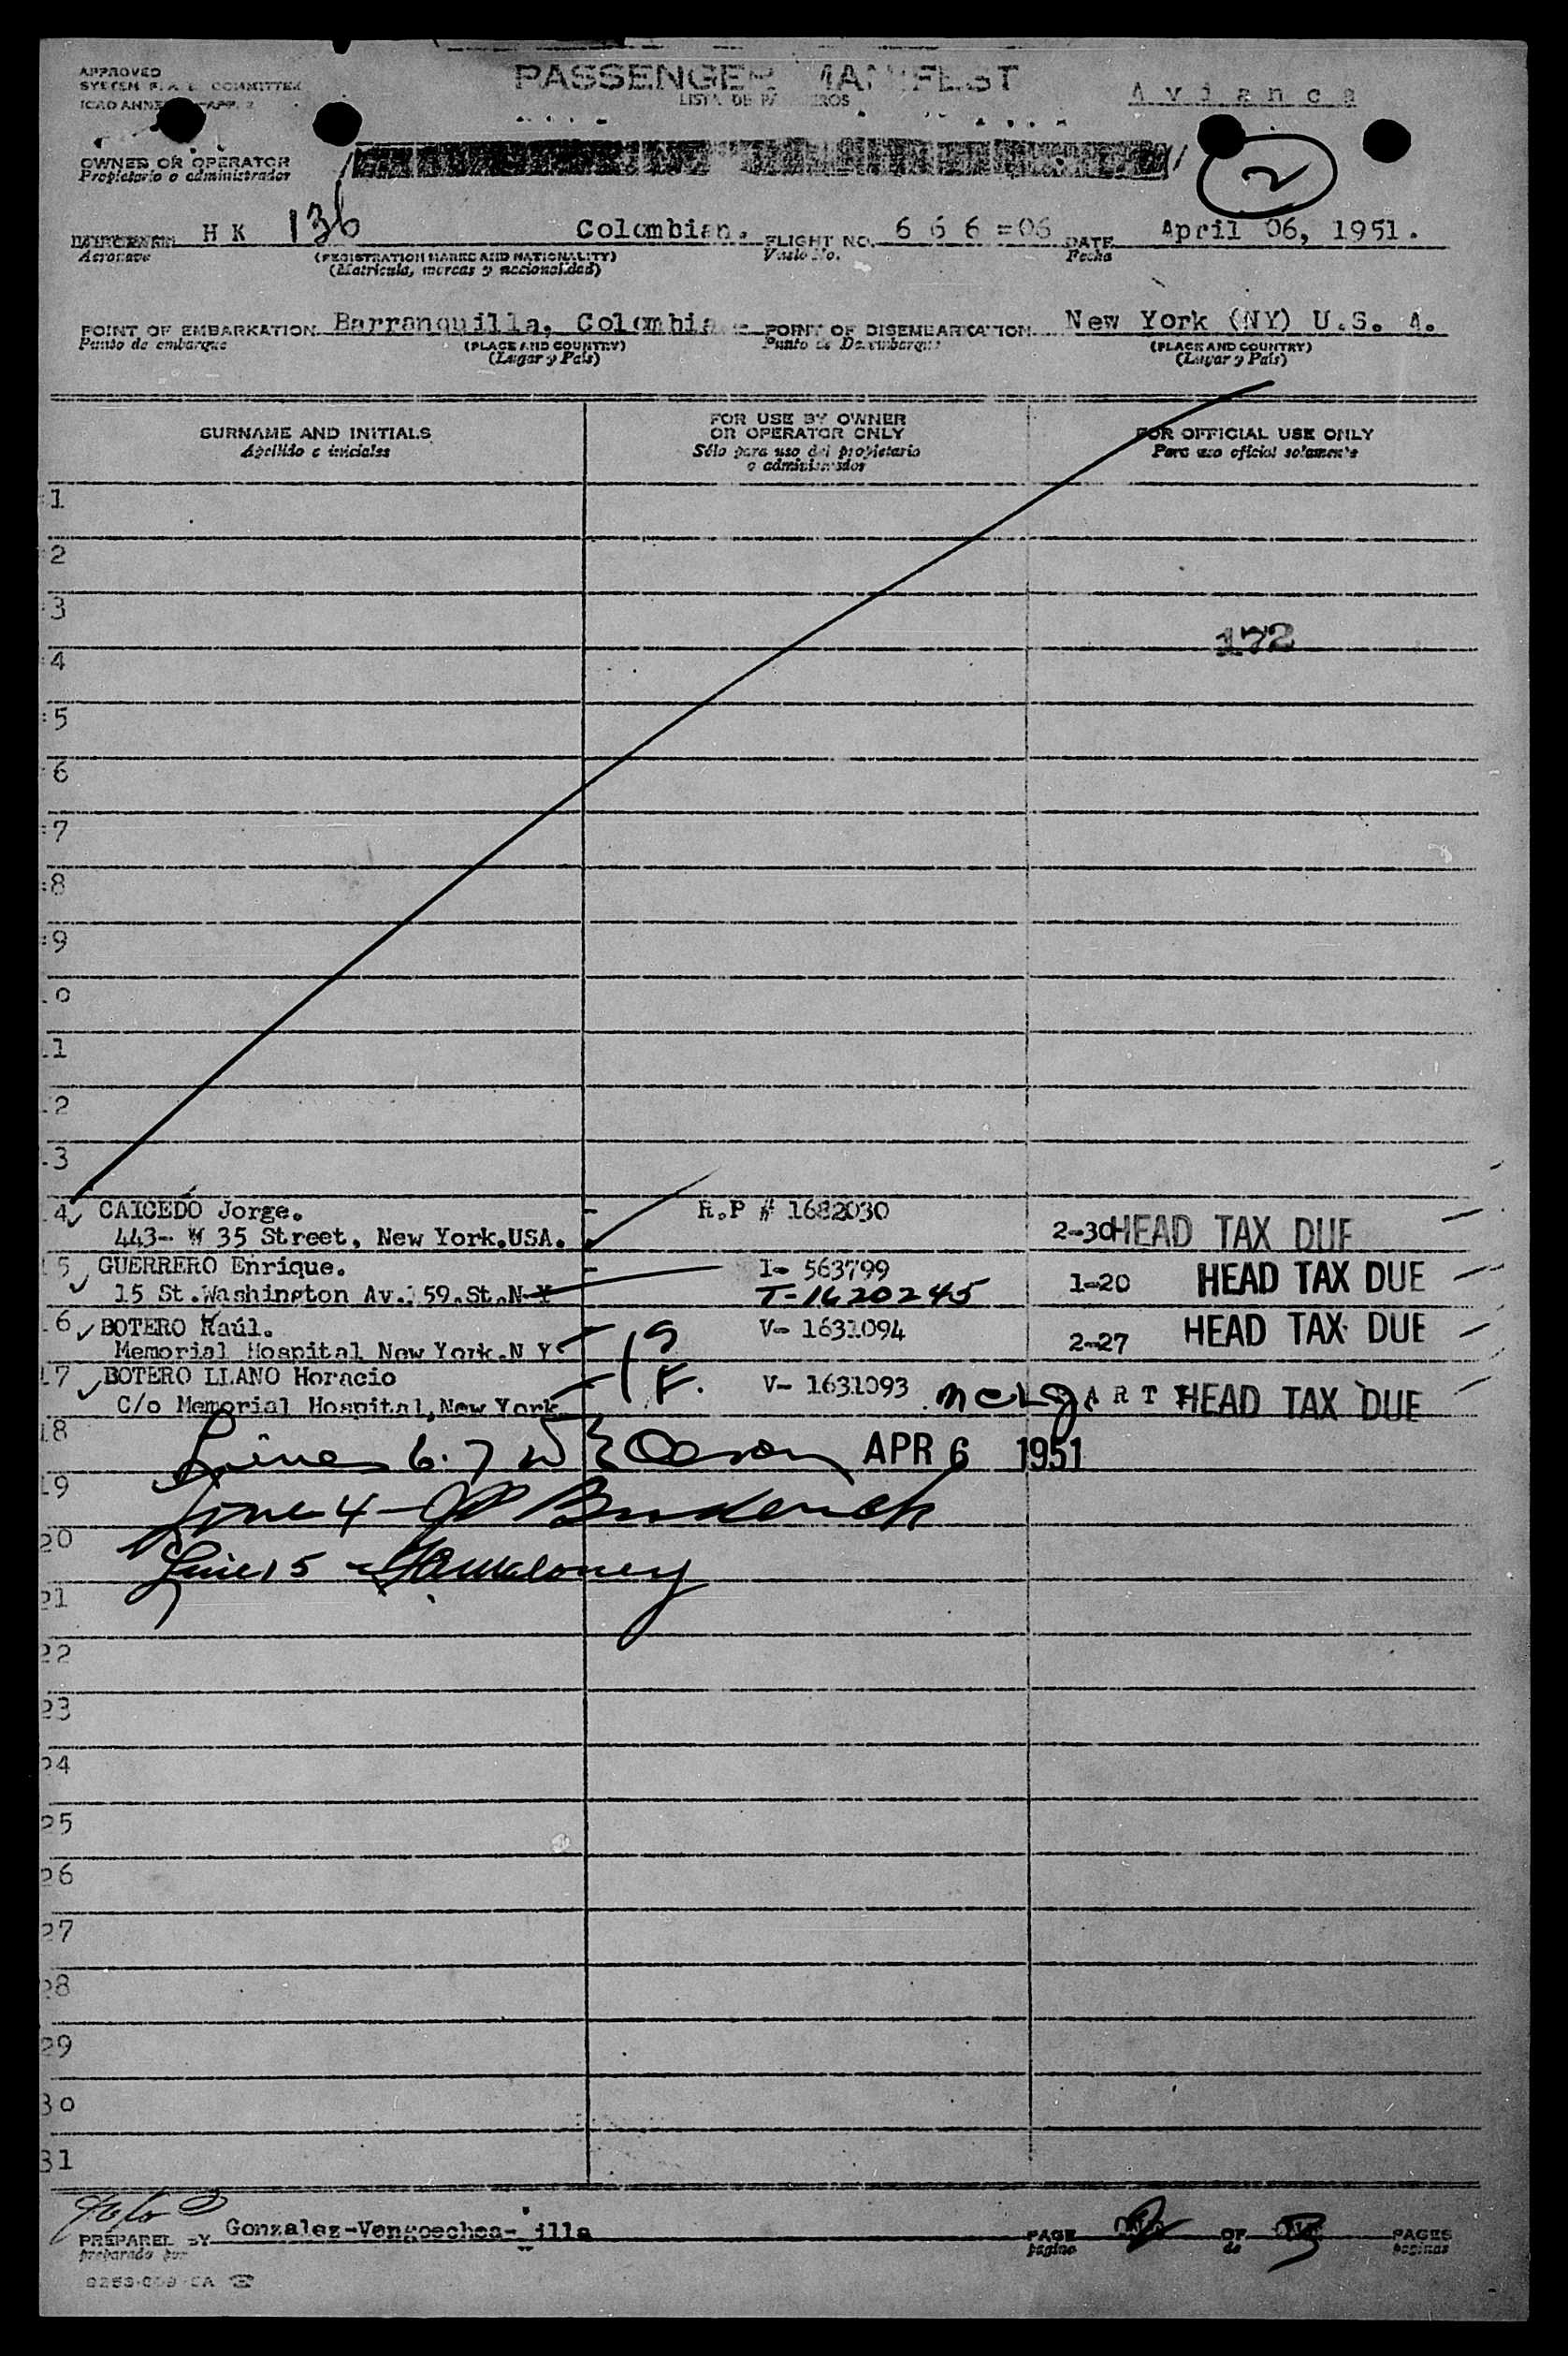 APPROVED
SYSTEM F. A. L. COMMITTEE
ICAO ANNEX APP. 2
PASSENGER MANIFEST
LISTA DE PASAJEROS
Avianca
OWNER OR OPERATOR
Propietario o administrador
2
HK 136 Colombian. FLIGHT NO. 666=06 DATE April 06, 1951.
Aeronave (REGISTRATION MARKS AND NATIONALITY) Vuelo No. Fecha
(Matricula, marcas y nacionalidad)
POINT OF EMBARKATION Barranquilla, Colombia POINT OF DISEMBARKATION New York (NY) U.S. A.
Punto de embarque (PLACE AND COUNTRY) Punto de Desembarque (PLACE AND COUNTRY)
(Lugar y País) (Lugar y País)
SURNAME AND INITIALS FOR USE BY OWNER OR OPERATOR ONLY FOR OFFICIAL USE ONLY
Apellido e iniciales Sólo para uso del propietario o administrador Para uso oficial solamente
1
2
3
172
4
5
6
7
8
9
0
1
2
3
4 CAICEDO Jorge. - R.P # 1682030
443- W 35 Street, New York.USA. 2-30 HEAD TAX DUE
5 GUERRERO Enrique. - I- 563799
15 St.Washington Av. 59.St.N Y T-1620245 1-20 HEAD TAX DUE
6 BOTERO Raúl. V- 1631094
Memorial Hospital New York.N Y 2-27 HEAD TAX DUE
17 BOTERO LLANO Horacio V- 1631093
C/o Memorial Hospital,New York HEAD TAX DUE
18 Lines 6.7 APR 6 1951
19 Line 4 -
20 Line 15 - Maloney
21
22
23
24
25
26
27
28
29
30
31
PREPARED BY Gonzalez-Vengoechea- illa PAGE 2 OF 3 PAGES
preparado por página de páginas